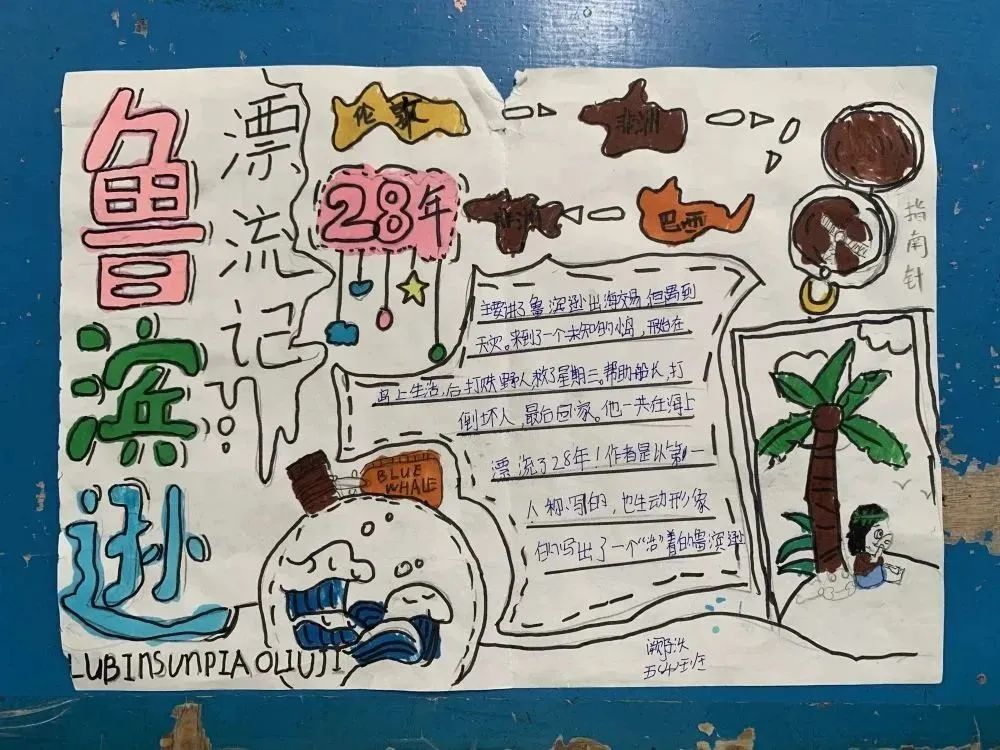 鲁滨逊
漂流记
伦敦
非洲
28年
非洲
巴西
指南针
主要讲了鲁滨逊出海交易,但遇到
天灾。来到了一个未知的岛,开始在
岛上生活,后打败野人救了星期三。帮助船长,打
倒坏人,最后回家。他一共在海上
漂流了28年!作者是以第一
人称写的,也生动形象
的写出了一个“活”着的鲁滨逊
BLUE
WHALE
LUBINSUNPIAOLIUJI